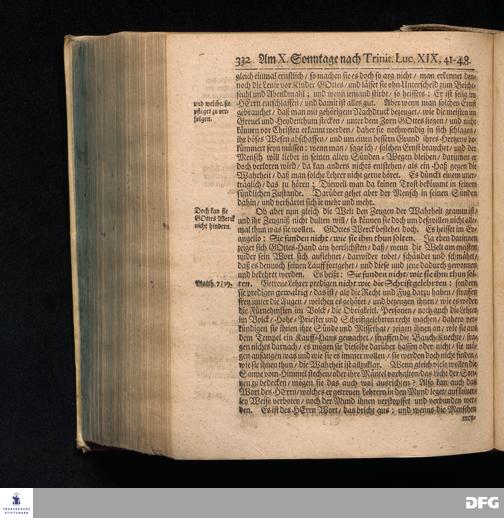 332 Am X. Sonntage nach Trinit. Luc. XIX, 41-48.
gleich einmal ernstlich / so machen sie es doch so arg nicht / man erkennet den-
noch die Leute vor Kinder GOttes / und lässet sie ohn Unterscheid zum Beicht-
stuhl und Abendmahl; und wenn iemand stirbt / so heissets: Er ist selig im
HErrn entschlaffen / und damit ist alles gut. Aber wenn man solchen Ernst
gebrauchet / daß man mit gehörigem Nachdruck bezeuget / wie die meisten im
Greuel und Heydenthum stecken / unter dem Zorn GOttes liegen / und nicht
können vor Christen erkannt werden / daher sie nothwendig in sich schlagen /
ihr böses Wesen abschaffen / und um einen bessern Grund ihres Hertzens be-
kümmert seyn müssen: wenn man / sage ich / solchen Ernst brauchet / und der
Mensch will lieber in seinen alten Sünden-Wegen bleiben / darinnen er
doch verloren wird / da kan anders nichts entstehen / als ein Haß gegen die
Wahrheit / daß man solche Lehrer nicht gerne höret. Es dünckt einem uner-
träglich / das zu hören; Dieweil man da keinen Trost bekömmt in seinem
sündlichen Zustande. Darüber gehet aber der Mensch in seinen Sünden
dahin / und verhärtet sich ie mehr und mehr.
und welche sie
pfleget zu ver-
folgen.
Ob aber nun gleich die Welt den Zeugen der Wahrheit gramm ist /
und ihr Zeugniß nicht dulten will / so können sie doch um deßwillen nicht alle-
mal thun was sie wollen. GOttes Werck bestehet doch. Es heisset im Ev-
angelio: Sie funden nicht / wie sie ihm thun solten. Ja eben darinnen
zeiget sich GOttes-Hand am herrlichsten / daß / wenn die Welt am meisten
wider sein Wort sich auflehnet / darwider tobet / schändet und schmähet /
daß es dennoch seinen Lauff fortgehet / und diese und jene dadurch gewonnen
und bekehret werden. Es heißt: Sie funden nicht / wie sie ihm thun sol-
ten. Getreue Lehrer predigen nicht wie die Schrifftgelehrten; sondern
Doch kan sie
GOttes Werck
nicht hindern.
Matth. 7/29.
sie predigen gewaltig / das ist / als die Recht und Fug darzu haben / straffen
frey unter die Augen / welchen es gehöret / und bezeugen ihnen / wie es weder
die Fürnehmsten im Volck / die Obrigkeitl. Personen / noch auch die Lehrer
im Volck / Hohe-Priester und Schrifftgelehrten recht machen / dahero ver-
kündigen sie ihnen ihre Sünde und Missethat / zeigen ihnen an / wie sie aus
dem Tempel ein Kauff-Haus gemachet / straffen die Bauch-Knechte / fra-
gen nichts darnach / es mögen sie dieselbe darüber hassen oder nicht / sie mö-
gen anfangen was und wie sie es immer wollen / sie werden doch nicht finden /
wie sie ihnen thun / die Wahrheit ist allzuklar. Wenn gleich viele wollen die
Sonne vom Himmel stechen / oder ihre Mäntel vorhalten / das Licht der Son-
nen zu bedecken / mögen sie das auch wol ausrichten? Also kan auch das
Wort des HErrn / welches er getreuen Lehrern in den Mund leget / auf keiner-
ley Weise verboten / noch der Mund ihnen verstopffet und verbunden wer-
den. Es ist des HErrn Wort / das bricht aus; und wenns die Menschen